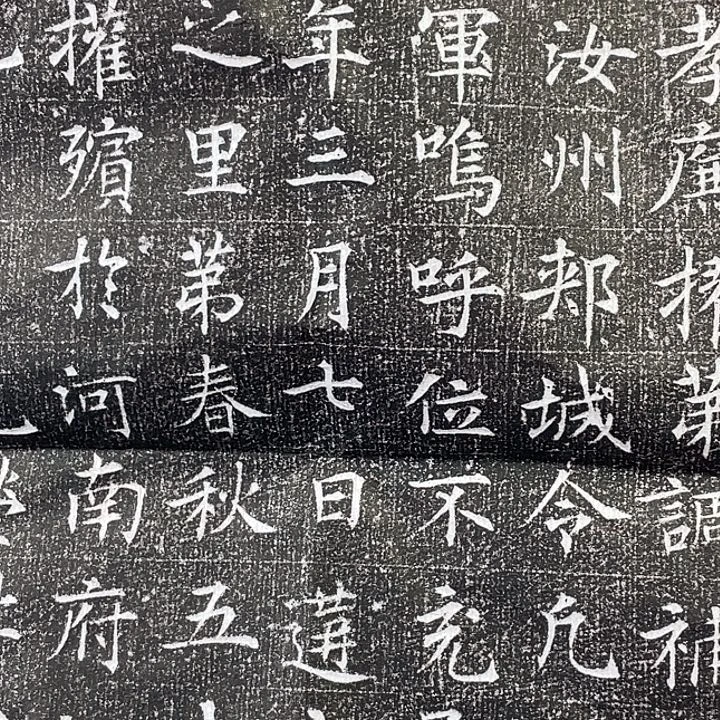 孝廉擢第調補
汝州郟城令凡
軍嗚呼位不充
年三月七日遘
之里第春秋五
攉殯於河南府